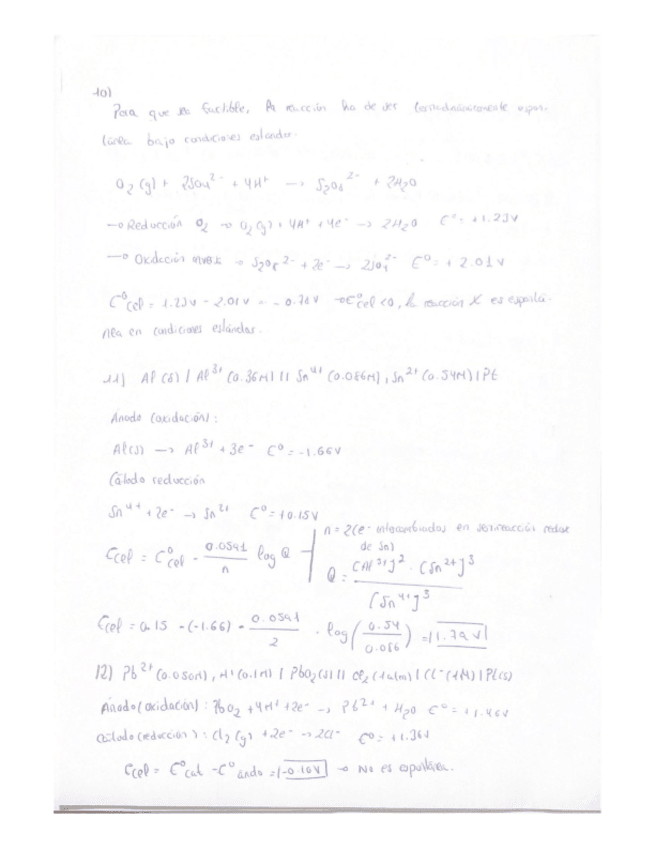 10)
Para que sea factible, la reacción ha de ser termodinámicamente espon-
tánea bajo condiciones estándar.
O2 (g) + 2SO4 2- + 4H+ → S2O8 2- + 2H2O
→ Reducción O2 → O2(g) + 4H+ + 4e- → 2H2O E° = +1.23V
→ Oxidación → S2O8 2- + 2e- → 2SO4 2- E° = + 2.01V
E°cel = 1.23V - 2.01V = - 0.78V → E°cel <0, la reacción X es espontá-
nea en condiciones estándar.
11) Al (s) | Al3+ (0.36M) || Sn4+ (0.086M), Sn2+ (0.54M) | Pt
Anodo (oxidación):
Al(s) → Al3+ + 3e- E° = -1.66V
Cátodo reducción
Sn4+ + 2e- → Sn2+ E° = +0.15V
Ecel = E°cel - 0.0591/n log Q
n = 2(e- intercambiados en semireacción redox
de Sn)
Q = [Al3+]2 · [Sn2+]3 / [Sn4+]3
Ecel = 0.15 - (-1.66) - 0.0591/2 · log(0.54/0.086) = 1.79V
12) Pb2+ (0.050M), H+ (0.1M) | PbO2 (s) || Cl2 (1atm) | Cl- (1M) | Pt(s)
Ánodo (oxidación): PbO2 + 4H+ + 2e- → Pb2+ + H2O E° = +1.46V
Cátodo (reducción): Cl2 (g) + 2e- → 2Cl- E° = +1.36V
Ecel = E°cat - E°anodo = -0.10V → No es espontánea.